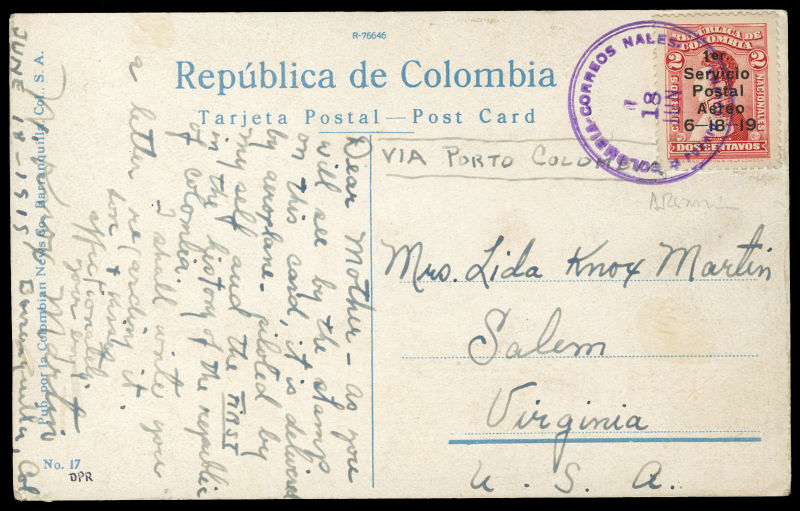 R-76646
República de Colombia
Tarjeta Postal — Post Card
Dear Mother – as you
will see by the stamp
on this card, it is delivered
by aeroplane – piloted by
my self and the FIRST
in the history of the republic
of Colombia.
I shall write you
a letter regarding it
son & Knox
Knox Martin
JUNE 18 - 1919 / Barranquilla, Col
Pub. por la Colombian News Co. Barranquilla, Col., S. A.
No. 17
DPR
COLOMBIA-CORREOS NALES.
18
JUN
REPUBLICA DE
COLOMBIA
2 2
CORREOS NACIONALES
1er.
Servicio
Postal
Aereo
6-18-19
DOS CENTAVOS
VIA PORTO COLOMBIA
Mrs. Lida Knox Martin
Salem
Virginia
U. S. A.